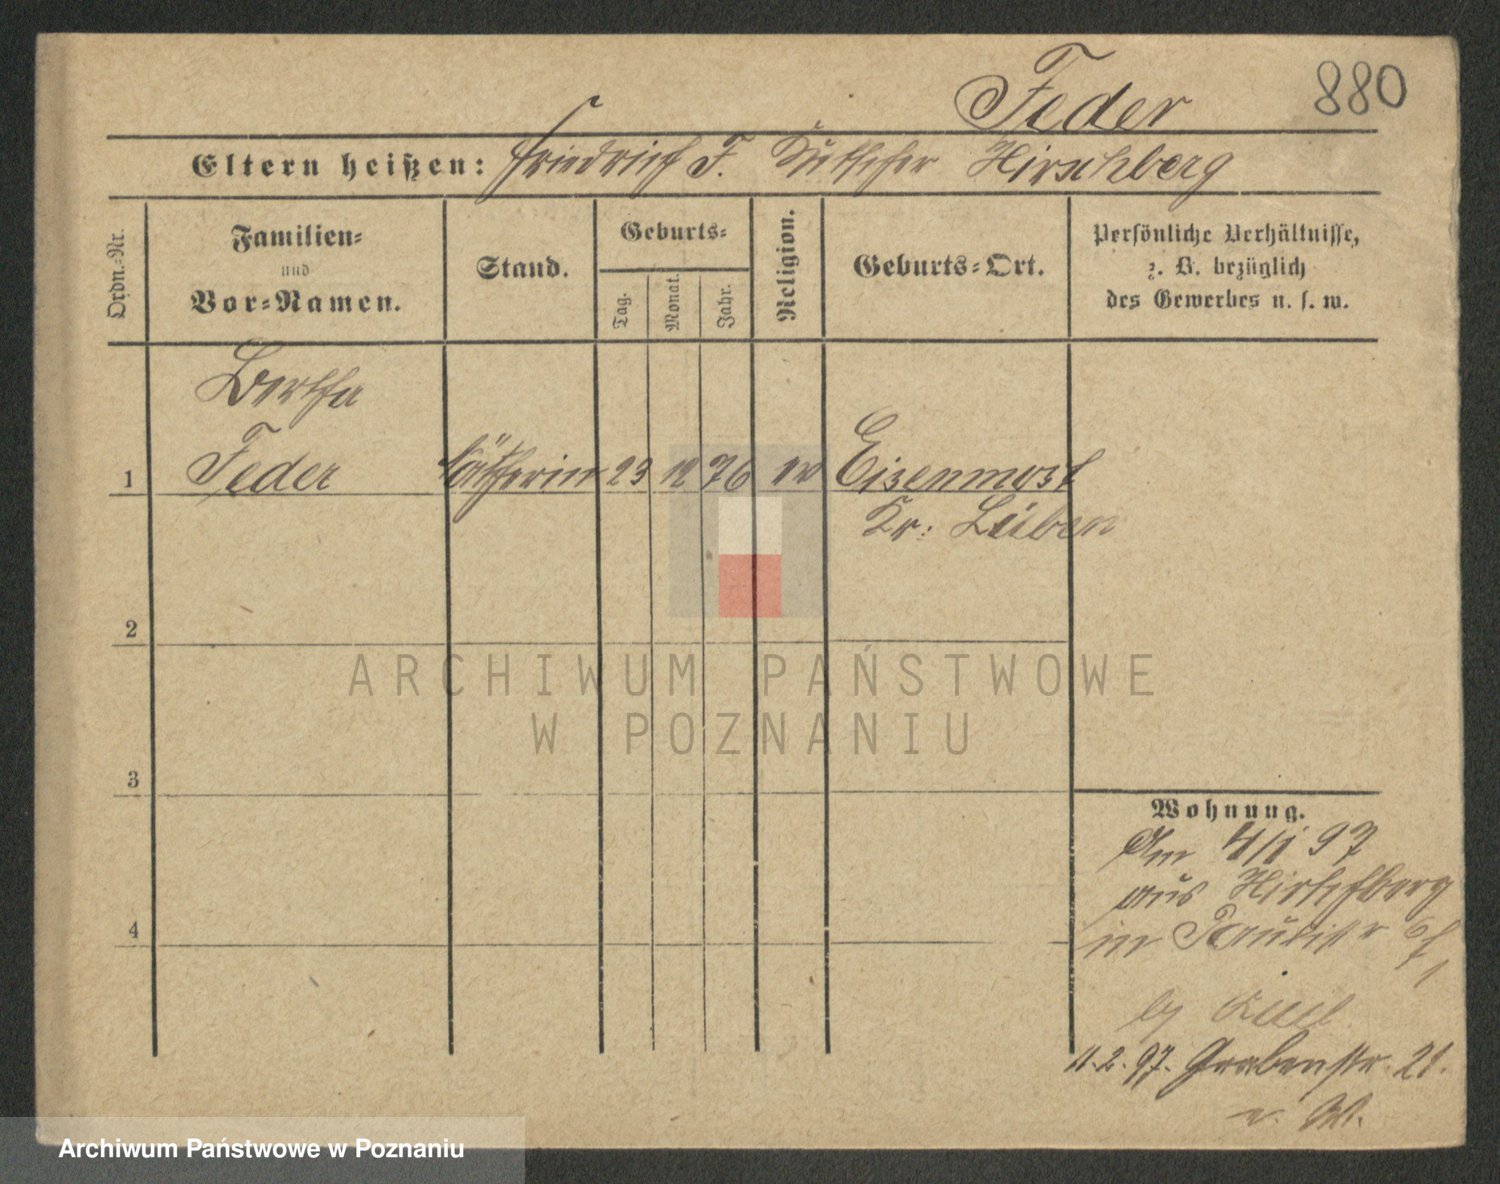 Feder 880
Eltern heißen: Friedrich F. Kutscher Hirschberg
Ordn.-Nr.
Familien-
und
Vor-Namen.
Stand.
Geburts-
Tag.
Monat.
Jahr.
Religion.
Geburts-Ort.
Persönliche Verhältnisse,
z. B. bezüglich
des Gewerbes u. s. w.
Bertha
1 Feder Nätherin 23 12 76 ev Eisenmost
Kr: Lüben
2
ARCHIWUM PAŃSTWOWE
W POZNANIU
3
Wohnung.
Am 4/1 97
aus Hirschberg
4
in Paulistr
11.2.97. Grabenstr. 21.
Archiwum Państwowe w Poznaniu